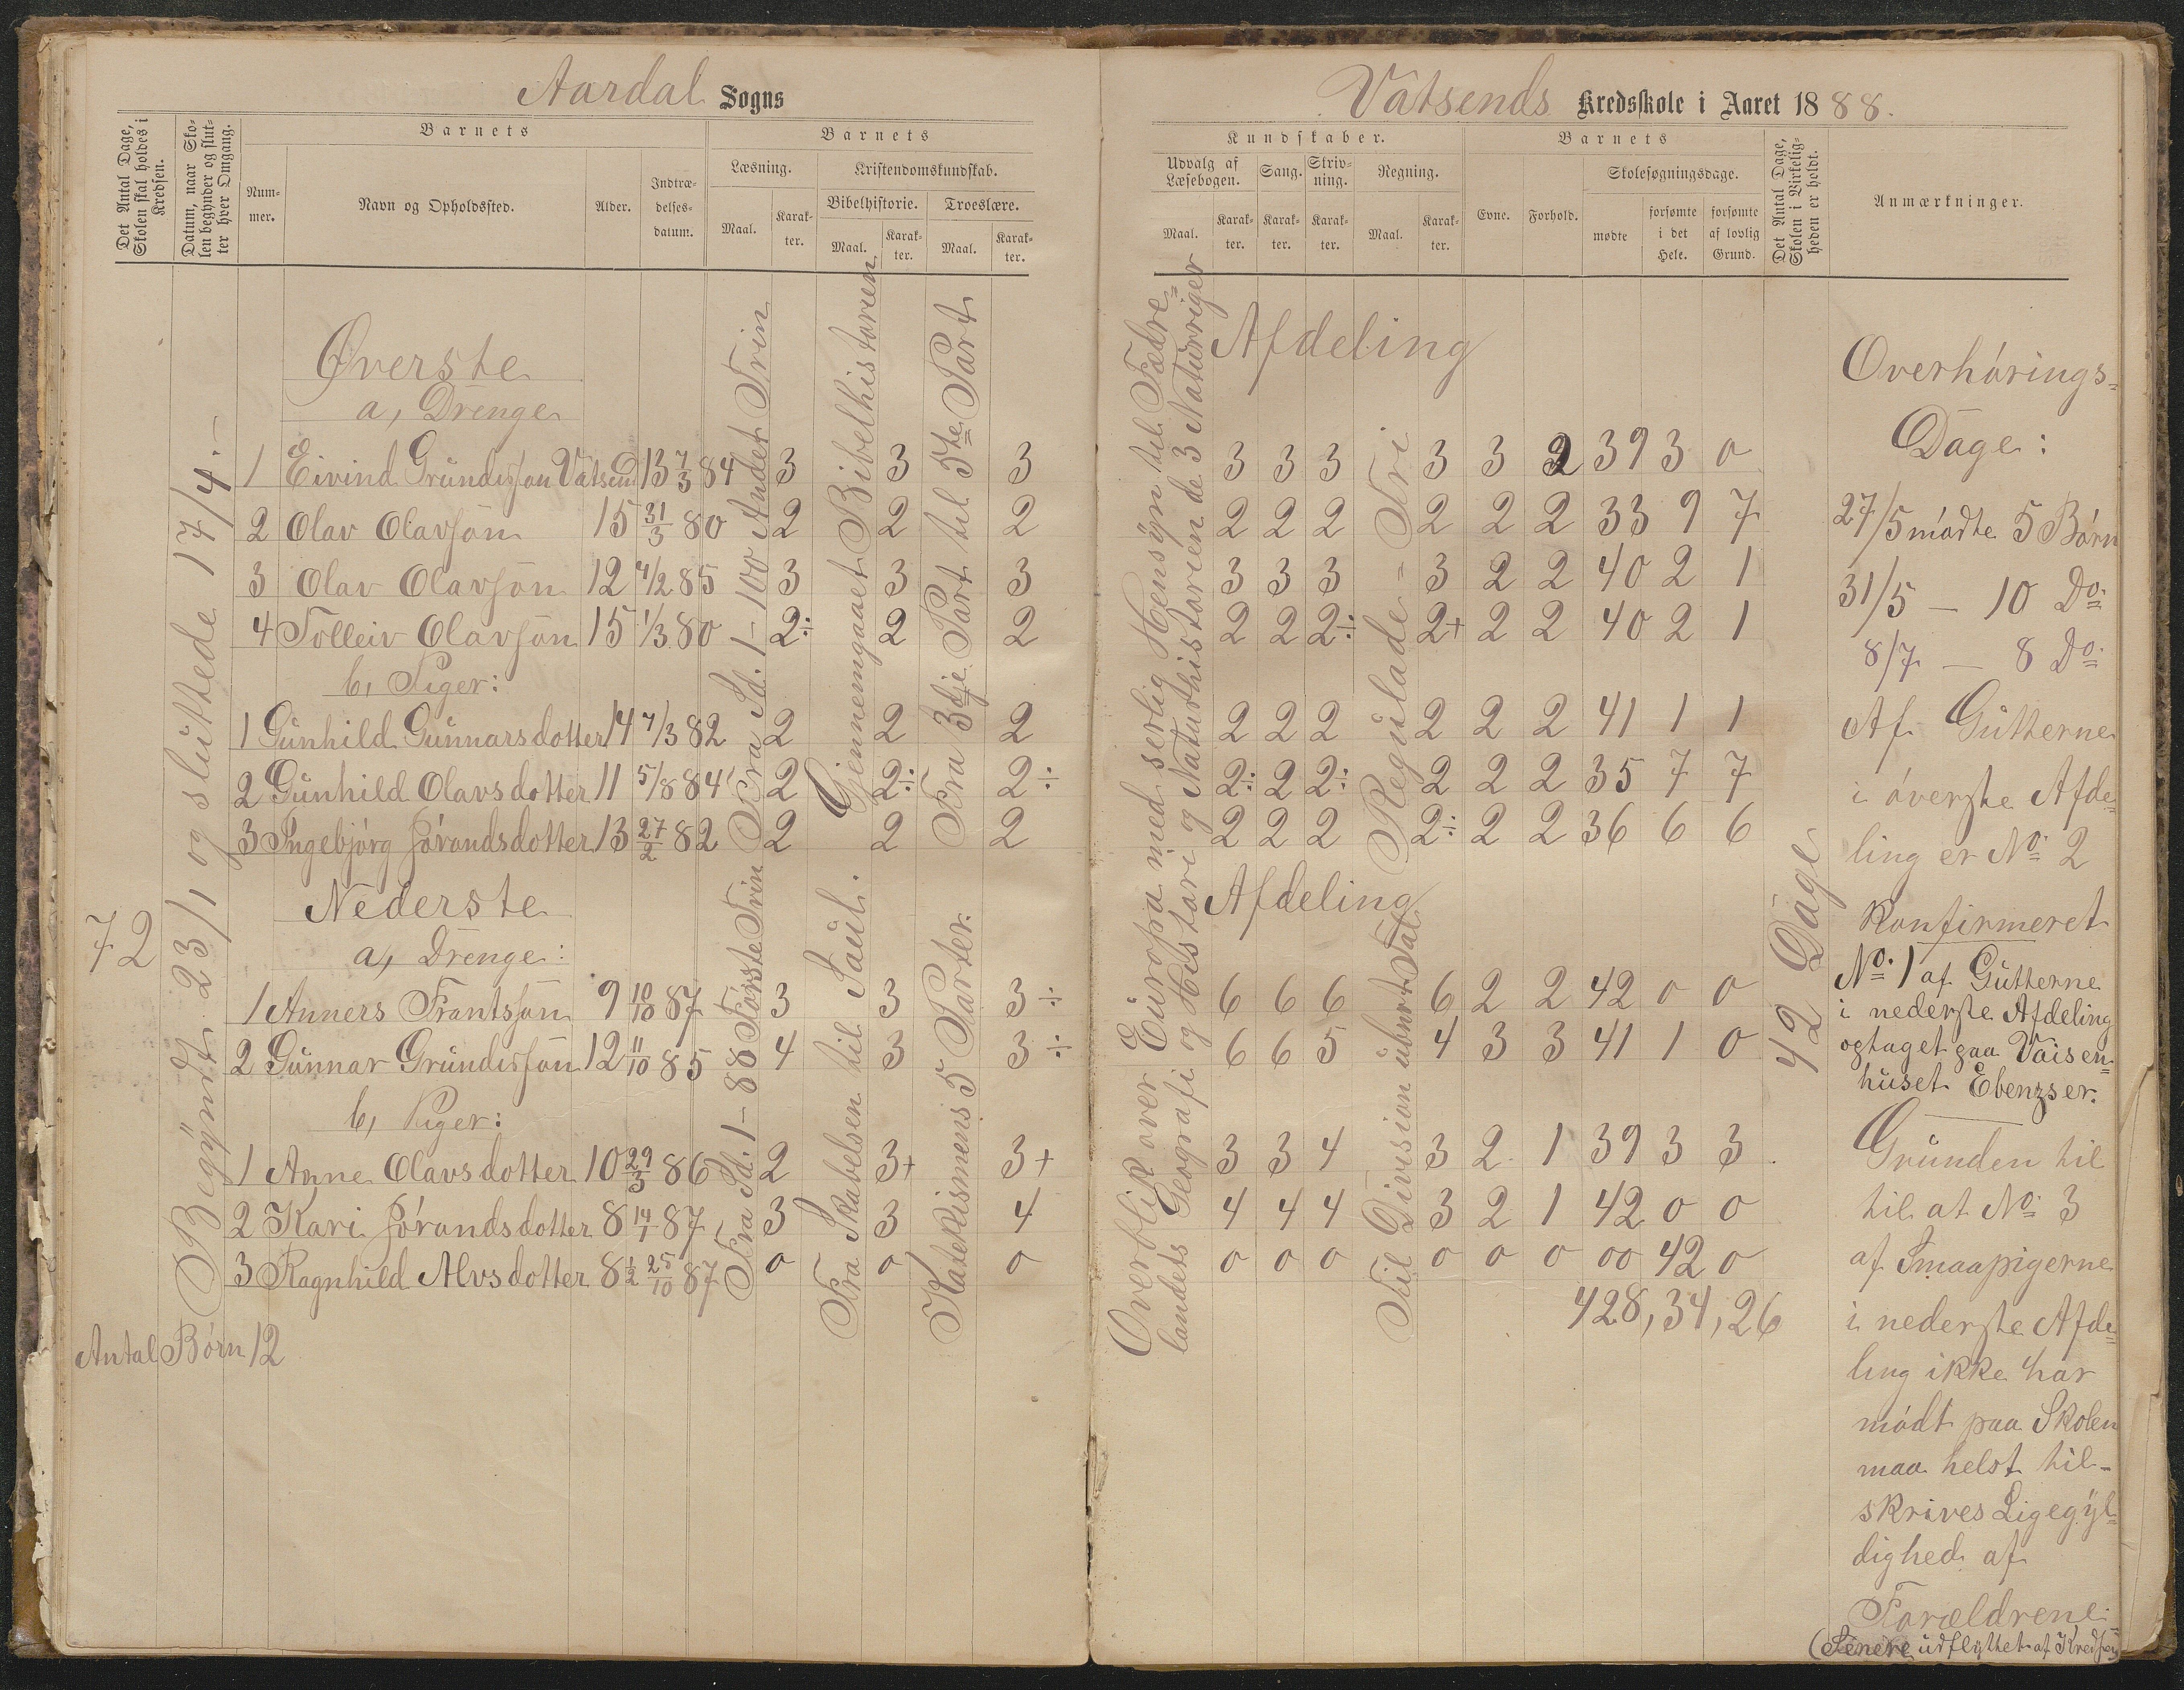 Aardal Sogns
Det Antal Dage, Skolen skal holdes i Kredsen.
Datum, naar Skolen begynder og slutter hver Omgang.
Barnets
Nummer.
Navn og Opholdssted.
Alder.
Indtrædelsesdatum.
Barnets
Læsning.
Maal.
Karakter.
Kristendomskundskab.
Bibelhistorie.
Maal.
Karakter.
Troeslære.
Maal.
Karakter.
72
Begyndt 23/1 og sluttede 17/4.-
Øverste
a, Drenge
1 Eivind Grundesson Vatsend 13 7/3 84 3 3 3
2 Olav Olavsön 15 31/3 80 2 2 2
3 Olav Olavsön 12 4/2 85 3 3 3
4 Tolleiv Olavsön 15 1/3 80 2÷ 2 2
b, Piger:
1 Gunhild Gunnarsdotter 14 7/3 82 2 2 2
2 Gunhild Olavsdotter 11 5/8 84 2 2÷ 2÷
3 Ingebjörg Jörandsdotter 13 27/2 82 2 2 2
Nederste
a, Drenge:
1 Anners Frantssön 9 10/10 87 3 3 3÷
2 Gunnar Grundesön 12 11/10 85 4 3 3÷
b, Piger:
1 Anne Olavsdotter 10 29/3 86 2 3+ 3+
2 Kari Jörandsdotter 8 14/1 87 3 3 4
3 Ragnhild Alvsdotter 8 1/2 25/10 87 0 0 0
Antal Börn 12
Fra Sd. 1-100 Andet Trin
Gjennemgaaet Bibelhistorien
Fra 3dje Part til 5te Part
Fra Sd. 1-88 Förste Trin
Fra Skabelsen til Saul.
Katekismens 5 Parter.
Vatsends Kredsskole i Aaret 1888.
Kundskaber.
Udvalg af Læsebogen.
Maal.
Karakter.
Sang.
Karakter.
Skrivning.
Karakter.
Regning.
Maal.
Karakter.
Barnets
Evne.
Forhold.
Skolesøgningsdage.
mødte
forsømte i det Hele.
forsømte af lovlig Grund.
Det Antal Dage, Skolen i Virkeligheden er holdt.
Anmærkninger.
Overblik over Europa med serlig Hensyn til Fædre=
landets Geografi og Histori og Naturhistorien de 3 Naturriger
Afdeling
3 3 3 3 3 2 39 3 0
2 2 2 2 2 2 33 9 7
3 3 3 3 2 2 40 2 1
2 2 2÷ 2+ 2 2 40 2 1
2 2 2 2 2 2 41 1 1
2÷ 2 2÷ 2 2 2 35 7 7
2 2 2 2÷ 2 2 36 6 6
Regulade=Tri
Afdeling
6 6 6 6 2 2 42 0 0
6 6 5 4 3 3 41 1 0
3 3 4 3 2 1 39 3 3
4 4 4 3 2 1 42 0 0
0 0 0 0 0 0 00 42 0
428, 34, 26
Til Division ubnvt Tal
42 Dage
Overhörings=
Dage:
27/5 mödte 5 Börn
31/5 - 10 Do
8/7 - 8 Do
Af Gutterne
i överste Afde=
ling er No 2
Konfirmeret
No. 1 af Gutterne
i nederste Afdeling
optaget paa Vaisen=
huset Ebenzser.
Grunden til
til at No 3
af Smaapigerne
i nederste Afde=
ling ikke har
mödt paa Skolen
maa helst til-
skrives Ligegyl=
dighed af
Forældrene.
(Senere udflyttet af Kredsen